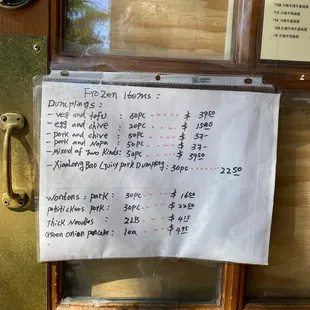 Frozen items :
Dumplings :
- veg and tofu : 50pc ------ $ 39.50
- egg and chive : 20pc ------ $ 15.80
- pork and chive : 50pc ------ $ 37-
- pork and Napa : 50pc ------ $ 37-
- Mixed of Two Kinds: 50pc ------ $ 39.50
- XiaoLong Bao (Juicy pork Dumpling) : 30pc ------ 22.50
Wontons : pork : 30pc ------ $ 16.50
potstickers pork : 30pc ------ $ 22.50
Thick Noodles : 2LB ------ $ 4.15
Green onion pancake : 1ea ------ $ 4.95